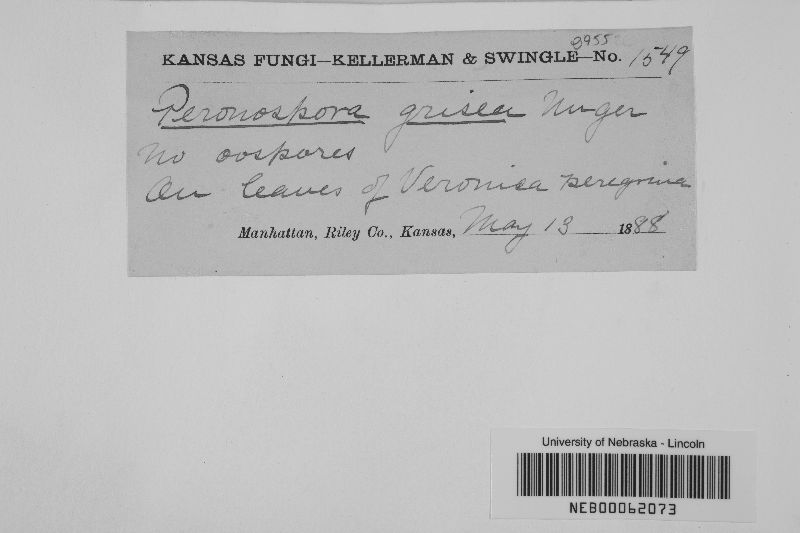 8955
KANSAS FUNGI—KELLERMAN & SWINGLE—No. 1549
Peronospora grisea Unger
No oospores
On leaves of Veronica peregrina
Manhattan, Riley Co., Kansas, May 13 1888
University of Nebraska - Lincoln
NEB00062073